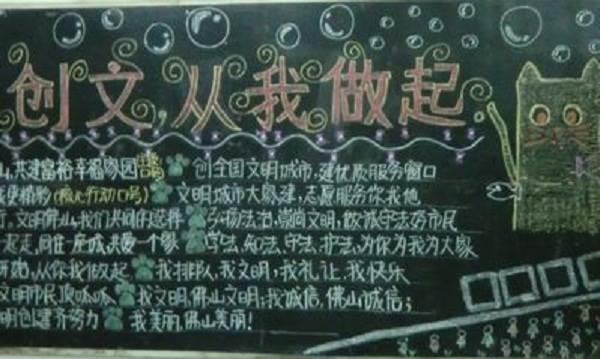 创文,从我做起.
山,共建富裕幸福家园 创全国文明城市,建优质服务窗口
更精彩(核心行动口号) 文明城市大家建,志愿服务你我他
文明佛山,我们共同的选择 弘扬法治,崇尚文明,做诚守法好市民
一起走,同住一座城,共爱一个家 学法,知法,守法,护法,为你为我为大家
开始,从你我做起 我排队,我文明;我礼让,我快乐
文明市民顶呱呱 我文明,佛山文明;我诚信,佛山诚信;
明创建齐努力 我美丽,佛山美丽!